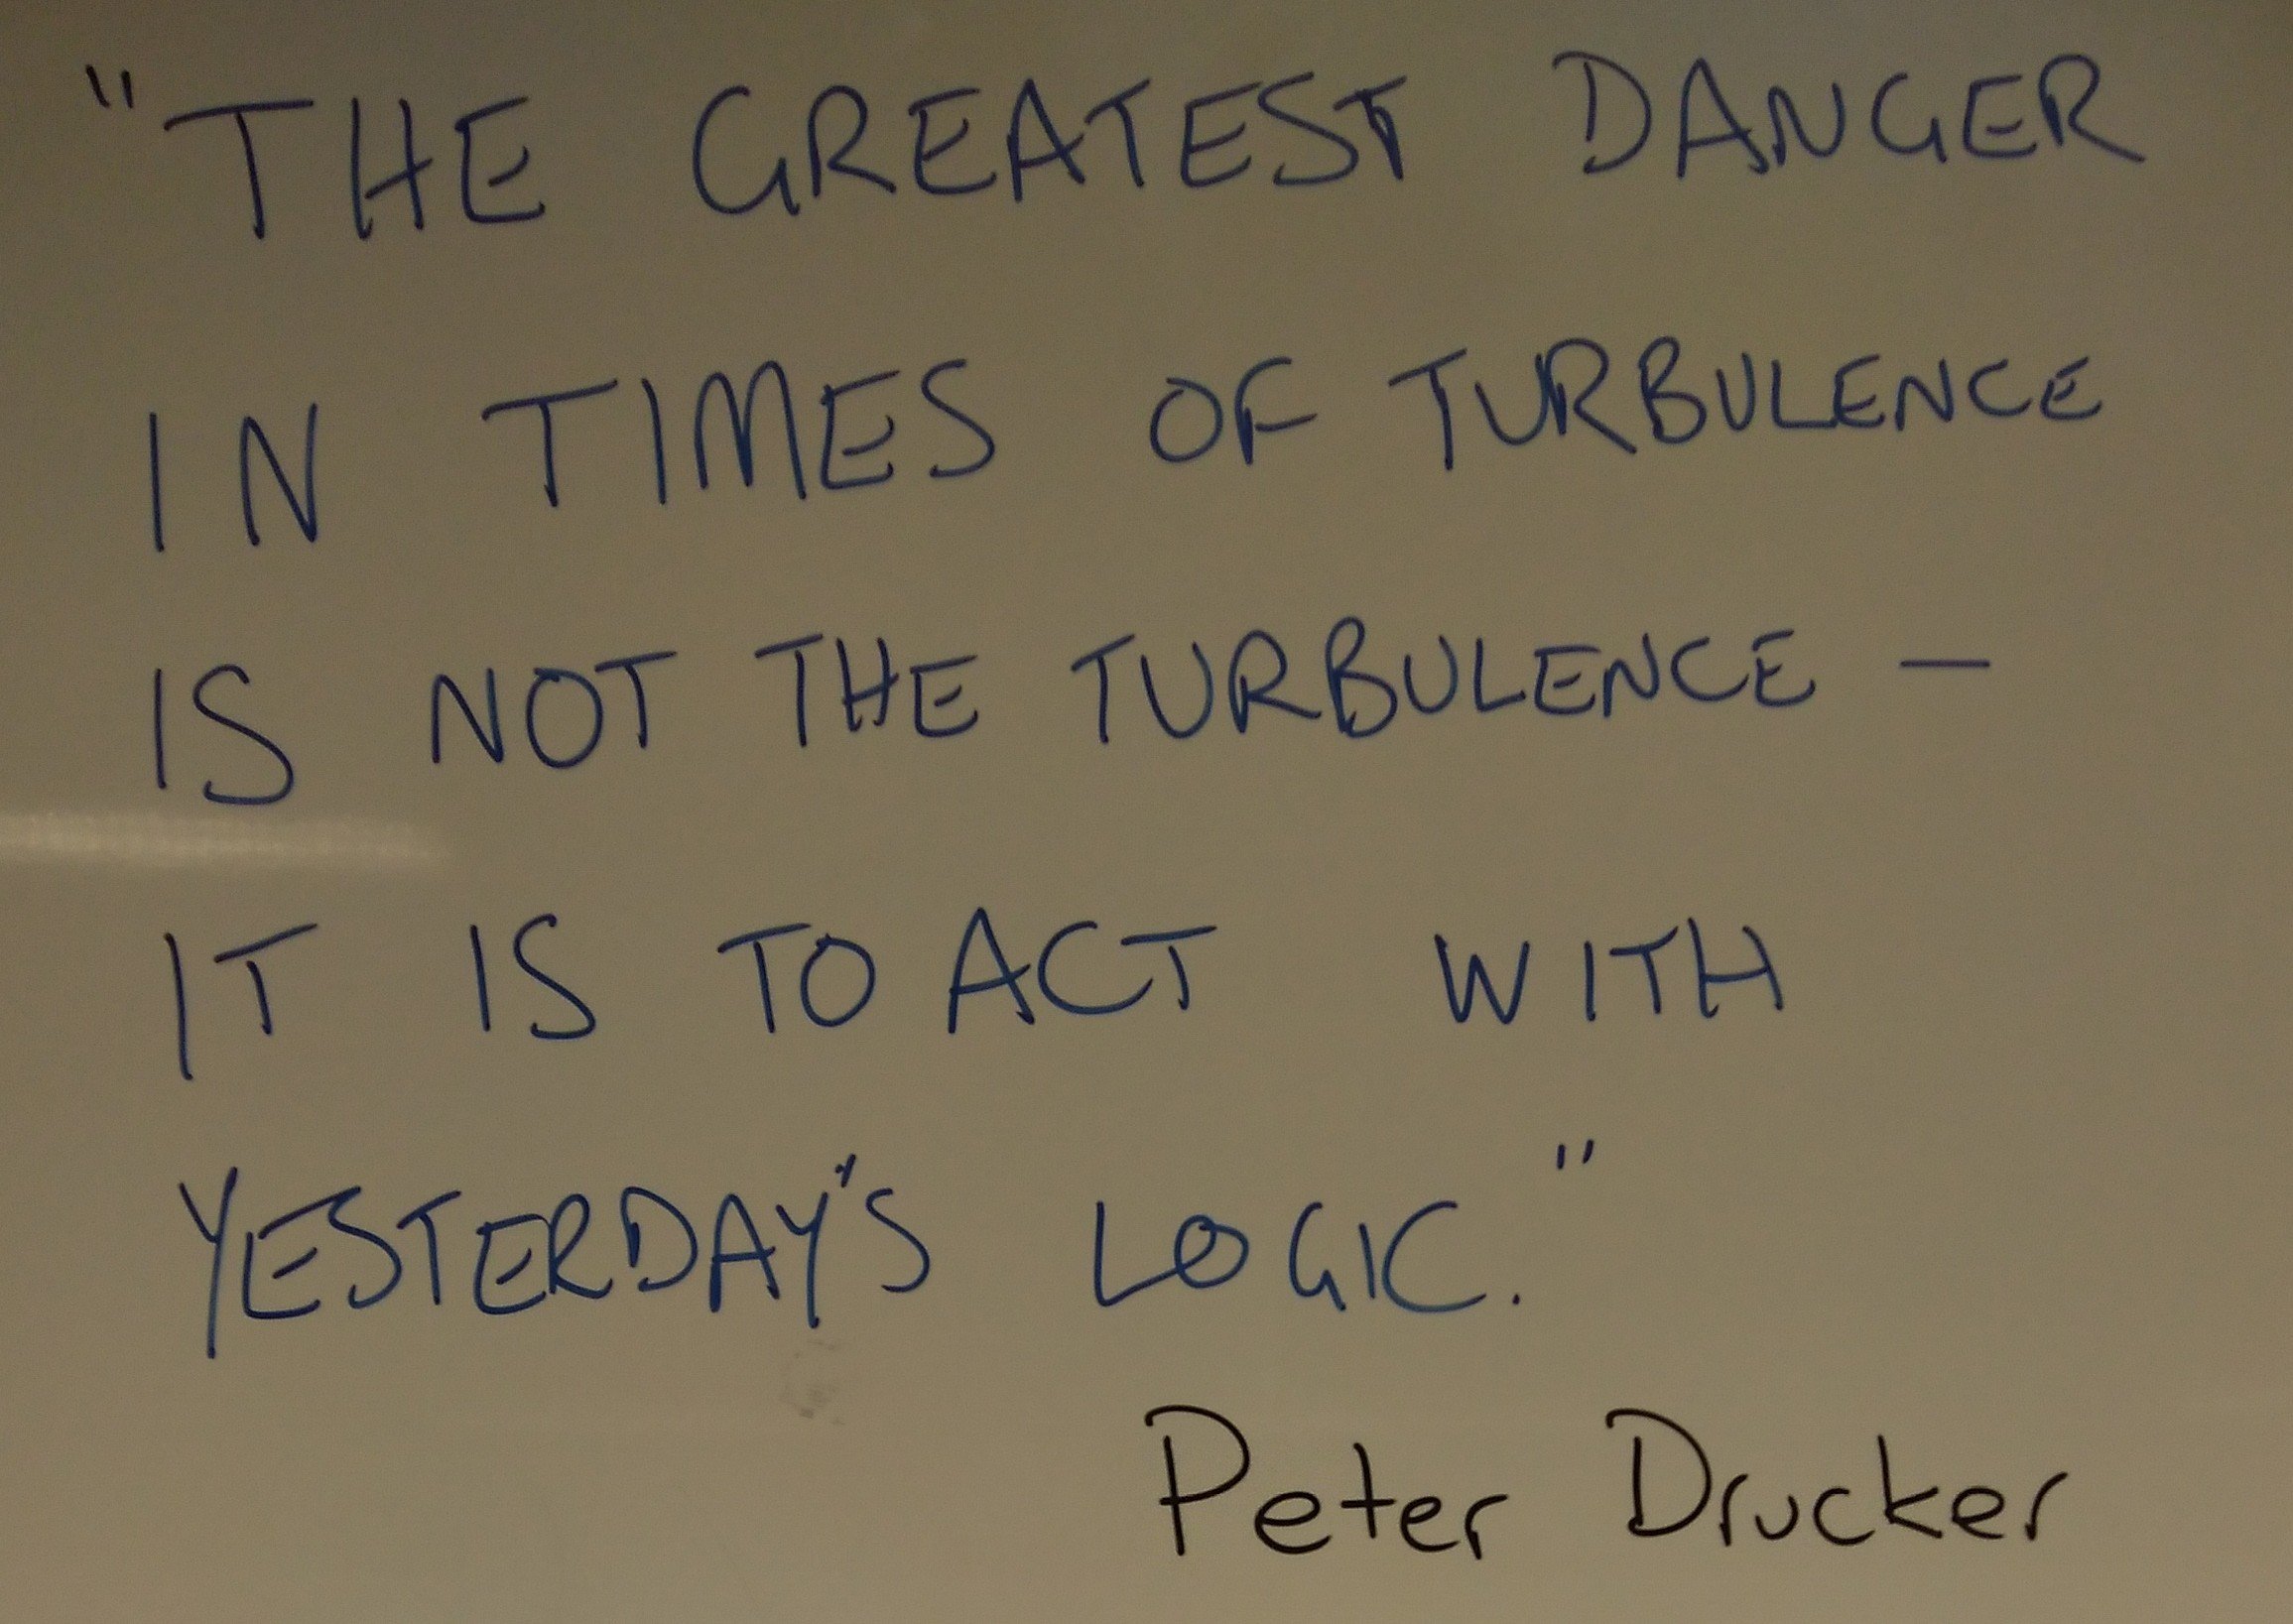 "THE GREATEST DANGER
IN TIMES OF TURBULENCE
IS NOT THE TURBULENCE —
IT IS TO ACT WITH
YESTERDAY'S LOGIC."
Peter Drucker